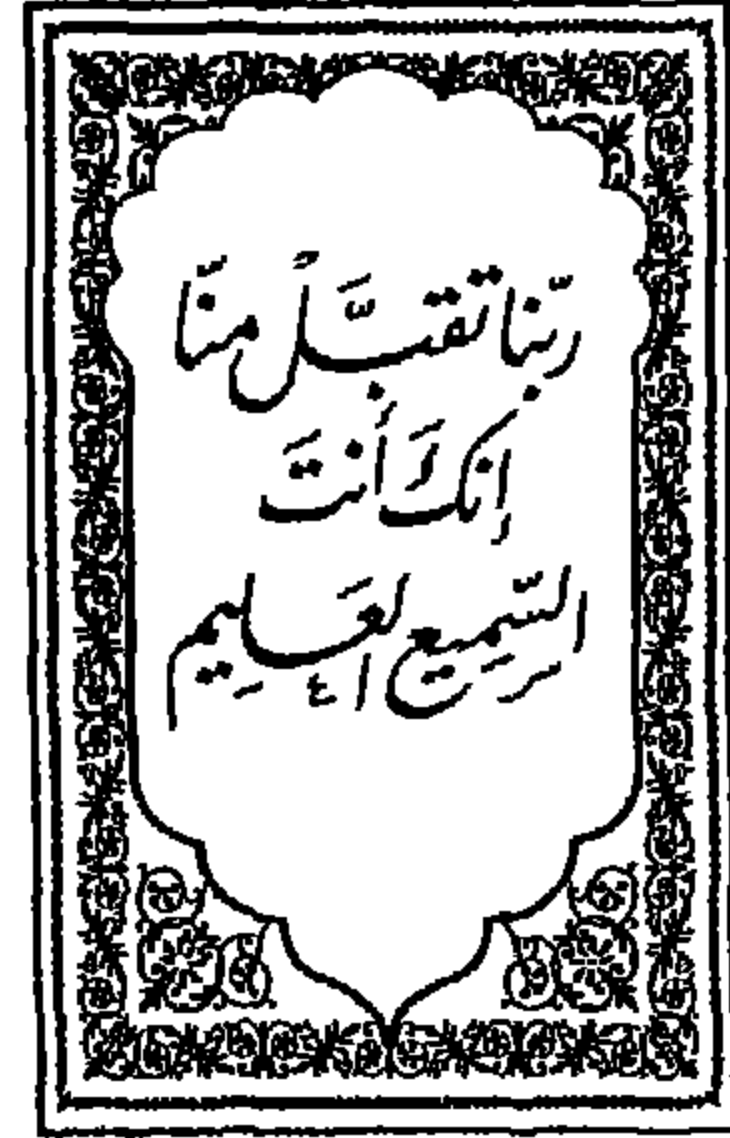 ربّنا تقبَّلْ منّا
إنكَ أَنتَ
السَّمِيع العَلِيم